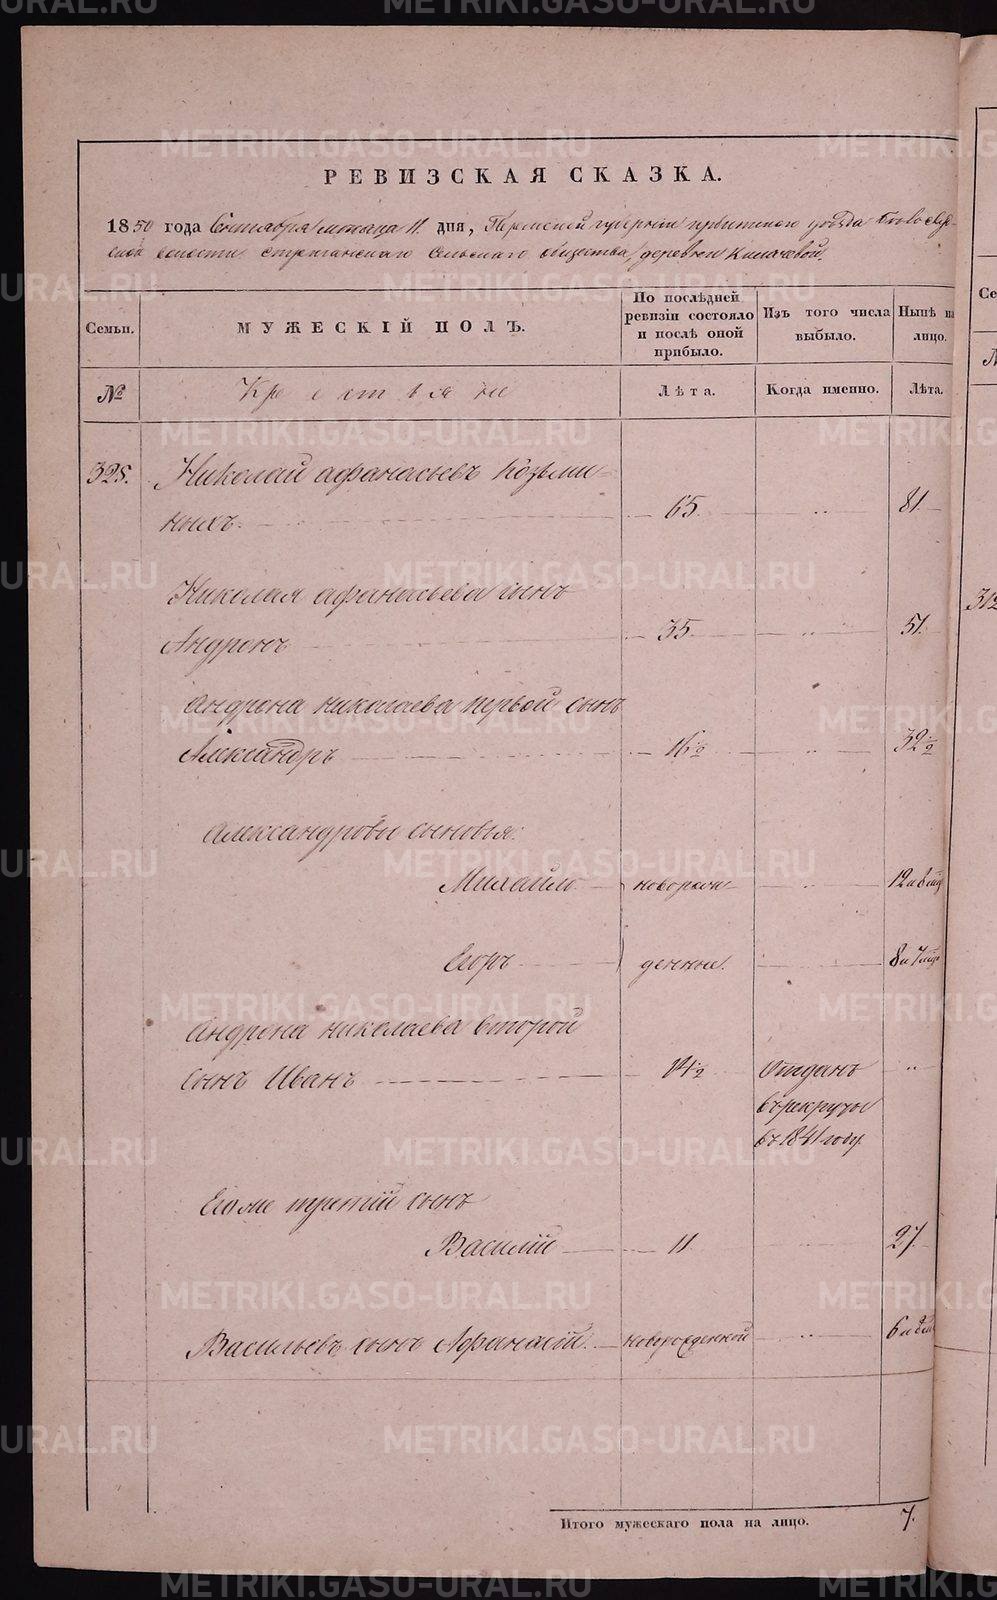 РЕВИЗСКАЯ СКАЗКА.
1850 года Сентября месяца 11 дня, Пермской губернии Ирбитского уезда Белослуд-
ской волости Стриганского Сельского общества деревни Кипачовой
Семьи.
МУЖЕСКІЙ ПОЛЪ.
По послѣдней ревизіи состояло и послѣ оной прибыло.
Изъ того числа выбыло.
Нынѣ на лицо.
№
Крестьяне
Лѣта.
Когда именно.
Лѣта.
328. Николай афанасьевъ Козьми-
ныхъ. 65 81
Николая афанасьева сынъ
Андронъ 35 51
Андрона николаева первой сынъ
Александръ 16½ 32½
Александровы сыновья:
Михайло новорож 12 и 8 мѣ
Егоръ денные. 8 и 7 мѣ
Андрона николаева второй
сынъ Иванъ 14½ Отданъ
въ рекруты
въ 1841 году
Его же третій сынъ
Василій 11 27
Васильевъ сынъ Афанасій новорожденной 6 и 2
Итого мужескаго пола на лицо. 7.
312
METRIKI.GASO-URAL.RU